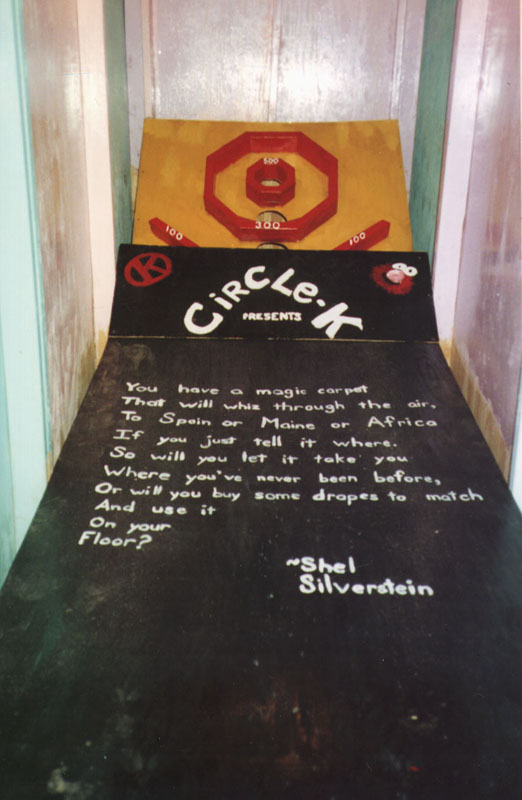 500
300
100 100
K
CIRCLE-K
PRESENTS
You have a magic carpet
That will whiz through the air,
To Spain or Maine or Africa
If you just tell it where.
So will you let it take you
Where you've never been before,
Or will you buy some drapes to match
And use it
On your
Floor?
~Shel
Silverstein